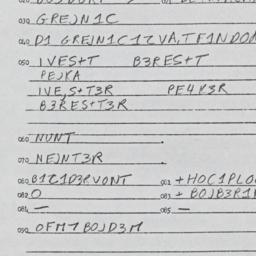 030 GREJN1C
040 D1 GREJN1C1ZVA,TF1NDO
050 IVES+T B3RES+T
PEJKA
IVE,S+T3R PE4K3R
B3RES+T3R
060 NUNT .
070 NEJNT3R .
080 B1C1D3RVONT 081 +HOC1PLO
082 O 083 + BOJB3R1
084 — 085 —
090 OFM7 BOJD3M